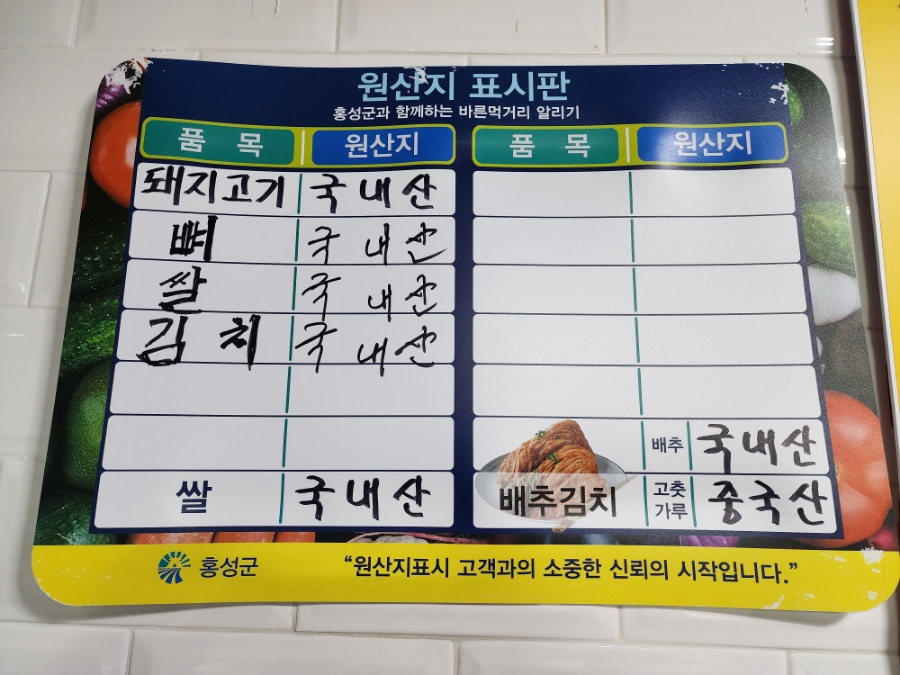 원산지 표시판
홍성군과 함께하는 바른먹거리 알리기
품 목 원산지 품 목 원산지
돼지고기 국내산
뼈 국내산
쌀 국내산
김치 국내산
배추 국내산
쌀 국내산 배추김치 고춧가루 중국산
홍성군 “원산지표시 고객과의 소중한 신뢰의 시작입니다.”